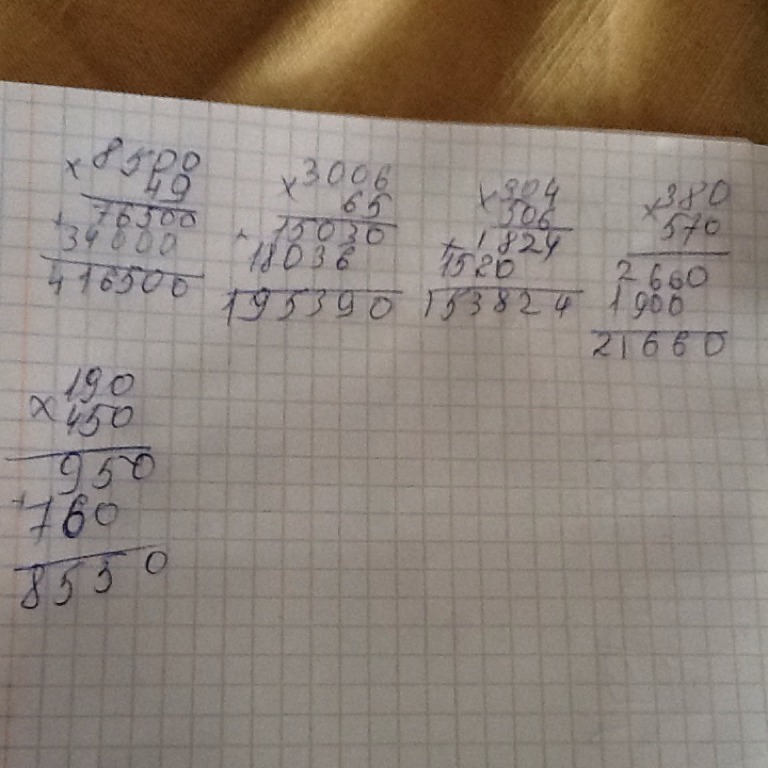 × 8500
49
76500
+ 34000
416500
× 3006
65
+ 15030
18036
195390
× 304
506
+ 1824
1520
153824
× 380
570
2660
1900
21660
× 190
450
950
+ 760
8550